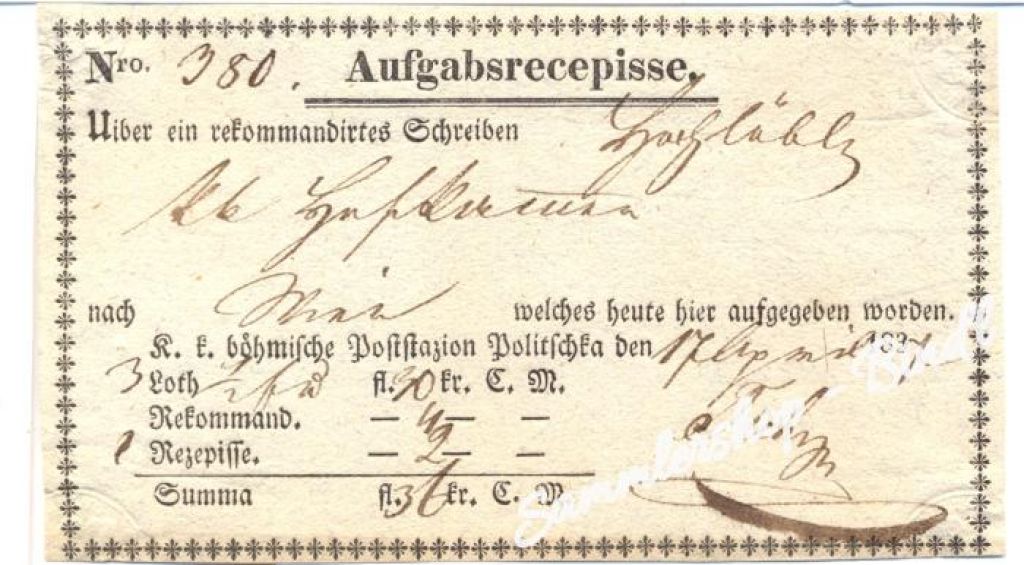 Nro. 380. Aufgabsrecepisse.
Uiber ein rekommandirtes Schreiben Hochlöbl
kk Hofkammer
nach Wien welches heute hier aufgegeben worden.
K. k. böhmische Poststazion Politschka den 17 April 183
3 Loth fl. 30 kr. C. M.
Rekommand. — 4 — —
1 Rezepisse. — 2 — —
Summa fl. 36 kr. C. M.
Sammlershop - Bindl